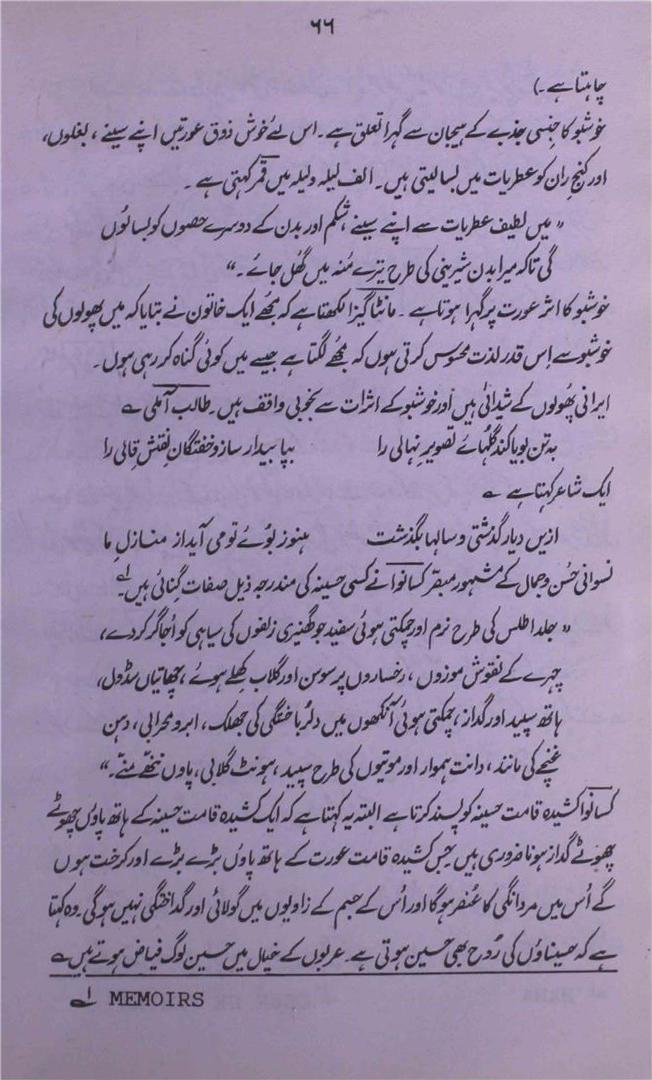 ۶۶
چاہتا ہے۔)
خوشبو کا جنسی جذبے کے ہیجان سے گہرا تعلق ہے۔ اس لئے خوش ذوق عورتیں اپنے سینے، بغلوں،
اور کنجِ ران کو عطریات میں بسا لیتی ہیں۔ الف لیلہ ولیلہ میں قمر کہتی ہے۔
"میں لطیف عطریات سے اپنے سینے، شکم اور بدن کے دوسرے حصوں کو بساؤں
گی تاکہ میرا بدن شیرینی کی طرح تیرے مُنہ میں گھُل جائے۔"
خوشبو کا اثر عورت پر گہرا ہوتا ہے۔ مانٹاگیزا لکھتا ہے کہ مجھے ایک خاتون نے بتایا کہ میں پھولوں کی
خوشبو سے اِس قدر لذت محسوس کرتی ہوں کہ مجھے لگتا ہے جیسے میں کوئی گناہ کر رہی ہوں۔
ایرانی پھُولوں کے شیدائی ہیں اور خوشبو کے اثرات سے بخوبی واقف ہیں۔ طالب آملی ؎
بہ تن بویا کند گلہائے تصویرِ نہالی را بپا بیدار سازد خفتگانِ نقشِ قالی را
ایک شاعر کہتا ہے ؎
ازیں دیار گذشتی و سالہا بگذشت ہنوز بوئے تو می آید از منازلِ ما
نسوانی حُسن و جمال کے مشہور مبصّر کسانوا نے کسی حسینہ کی مندرجہ ذیل صفات گِنائی ہیں۔ ۱ے
"جلد اطلس کی طرح نرم اور چمکتی ہوئی سفید جو گھنیری زلفوں کی سیاہی کو اُجاگر کر دے،
چہرے کے نقوش موزوں، رخساروں پر سوسن اور گلاب کھِلے ہوئے، چھاتیاں سڈول،
ہاتھ سپید اور گداز، چمکتی ہوئی آنکھوں میں دلربا خفگی کی جھلک، ابرو محرابی، دہن
غنچے کی مانند، دانت ہموار اور موتیوں کی طرح سپید، ہونٹ گلابی، پاوں ننھّے منّے۔"
کسانوا کشیدہ قامت حسینہ کو پسند کرتا ہے البتہ یہ کہتا ہے کہ ایک کشیدہ قامت حسینہ کے ہاتھ پاؤں چھوٹے
چھوٹے گداز ہونا ضروری ہیں جس کشیدہ قامت عورت کے ہاتھ پاوں بڑے بڑے اور کرخت ہوں
گے اُس میں مردانگی کا عُنصر ہوگا اور اُس کے جسم کے زاویوں میں گولائی اور گداختگی نہیں ہوگی۔ وہ کہتا
ہے کہ حسیناؤں کی رُوح بھی حسین ہوتی ہے۔ عربوں کے خیال میں حسین لوگ فیاض ہوتے ہیں ؎
۱ے MEMOIRS